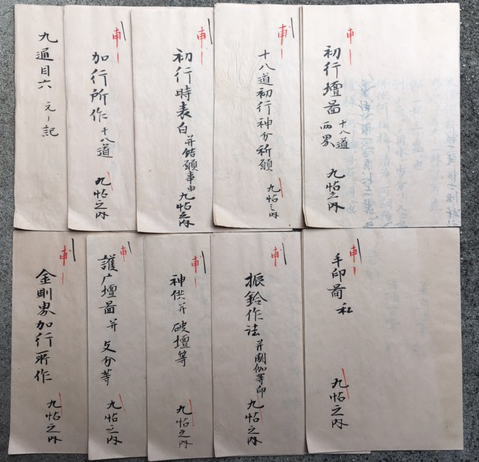 申
初行壇啚 十八道
両界
九帖之内
申
十八道初行神分祈願
九帖之内
申
初行時表白 并結願事由
九帖之内
申
加行所作 十八道
九帖之内
九通目六 元ー記
申
手印啚 私
九帖之内
申
振鈴作法 并閼伽等印
九帖之内
申
神供并破壇等
九帖之内
申
護广壇啚并支分等
九帖之内
申
金剛界加行所作
九帖之内